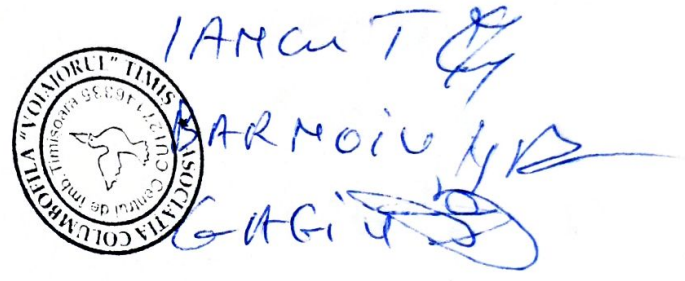 IANCU T
BARMOIU
GAGIU
ASOCIATIA COLUMBOFILA "VOIAJORUL" TIMIS
Centrul de imb. Timisoara